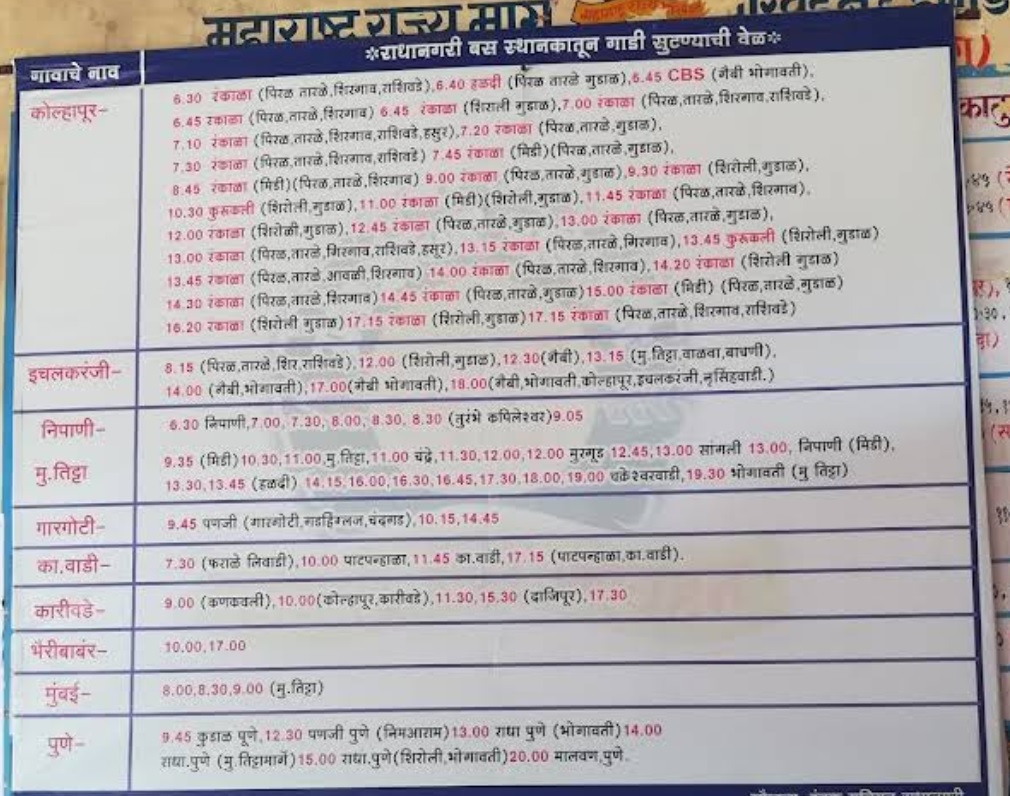 महाराष्ट्र राज्य मार्ग
*राधानगरी बस स्थानकातून गाडी सुटण्याची वेळ*
गावाचे नाव
कोल्हापूर–
6.30 रंकाळा (पिरळ तारळे,शिरगाव,राशिवडे),6.40 हळदी (पिरळ तारळे गुडाळ),6.45 CBS (गैबी भोगावती),
6.45 रकाळा (पिरळ,तारळे,शिरगाव) 6.45 रंकाळा (शिराली गुडाळ),7.00 रंकाळा (पिरळ,तारळे,शिरगाव,राशिवडे),
7.10 रंकाळा (पिरळ,तारळे,शिरगाव,राशिवडे,हसुर),7.20 रंकाळा (पिरळ,तारळे,गुडाळ),
7.30 रंकाळा (पिरळ,तारळे,शिरगाव,राशिवडे) 7.45 रंकाळा (मिडी)(पिरळ,तारळे,गुडाळ),
8:45 रंकाळा (मिडी)(पिरळ,तारळे,शिरगाव) 9.00 रंकाळा (पिरळ,तारळे,गुडाळ),9.30 रंकाळा (शिरोली,गुडाळ),
10.30 कुरूकली (शिरोली,गुडाळ),11.00 रंकाळा (मिडी)(शिरोली,गुडाळ),11.45 रंकाळा (पिरळ,तारळे,शिरगाव),
12.00 रंकाळा (शिरोळी,गुडाळ),12.45 रंकाळा (पिरळ,तारळे,गुडाळ),13.00 रंकाळा (पिरळ,तारळे,गुडाळ),
13.00 रंकाळा (पिरळ,तारळे,गिरगाव,राशिवडे,हसूर),13.15 रंकाळा (पिरळ,तारळे,गिरगाव),13.45 कुरूकली (शिरोली,गुडाळ)
13.45 रंकाळा (पिरळ,तारळे,आवळी,शिरगाव) 14.00 रंकाळा (पिरळ,तारळे,शिरगाव),14.20 रंकाळा (शिरोली गुडाळ)
14.30 रंकाळा (पिरळ,तारळे,शिरगाव)14.45 रंकाळा (पिरळ,तारळे,गुडाळ)15.00 रंकाळा (मिडी) (पिरळ,तारळे,गुडाळ)
16.20 रंकाळा (शिरोली गुडाळ)17.15 रंकाळा (शिरोली,गुडाळ)17.15 रंकाळा (पिरळ,तारळे,शिरगाव,राशिवडे)
इचलकरंजी–
8.15 (पिरळ,तारळे,शिर,राशिवडे),12.00 (शिरोली,गुडाळ),12.30(गैबी),13.15 (मु.तिट्टा,वाळवा,बाचणी),
14.00 (गैबी,भोगावती),17.00(गैबी भोगावती),18.00(गैबी,भोगावती,कोल्हापूर,इचलकरंजी,नृसिंहवाडी.)
निपाणी–
6.30 निपाणी,7.00, 7.30, 8.00, 8.30, 8.30 (तुरंभे कपिलेश्वर)9.05
मु.तिट्टा
9.35 (मिडी)10.30,11.00,मु.तिट्टा,11.00 चंद्रे,11.30,12.00,12.00 मुरगूड 12.45,13.00 सांगली 13.00, निपाणी (मिडी),
13.30,13.45 (हळदी) 14.15,16.00,16.30,16.45,17.30,18.00,19.00 चक्रेश्वरवाडी,19.30 भोगावती (मु तिट्टा)
गारगोटी–
9.45 पणजी (गारगोटी,गडहिंग्लज,चंदगड),10.15,14.45
का.वाडी–
7.30 (फराळे लिवाडी),10.00 पाटपन्हाळा,11.45 का.वाडी,17.15 (पाटपन्हाळा,का.वाडी).
कारीवडे–
9.00 (कणकवली),10.00(कोल्हापूर,कारीवडे),11.30,15.30 (दाजिपूर),17.30
भैरीबाबंर–
10.00,17.00
मुंबई–
8.00,8.30,9.00 (मु.तिट्टा)
पुणे–
9.45 कुडाळ पूणे,12.30 पणजी पुणे (निमआराम)13.00 राधा पुणे (भोगावती)14.00
राधा.पुणे (मु.तिट्टामार्गे)15.00 राधा.पुणे(शिरोली,भोगावती)20.00 मालवण,पुणे.